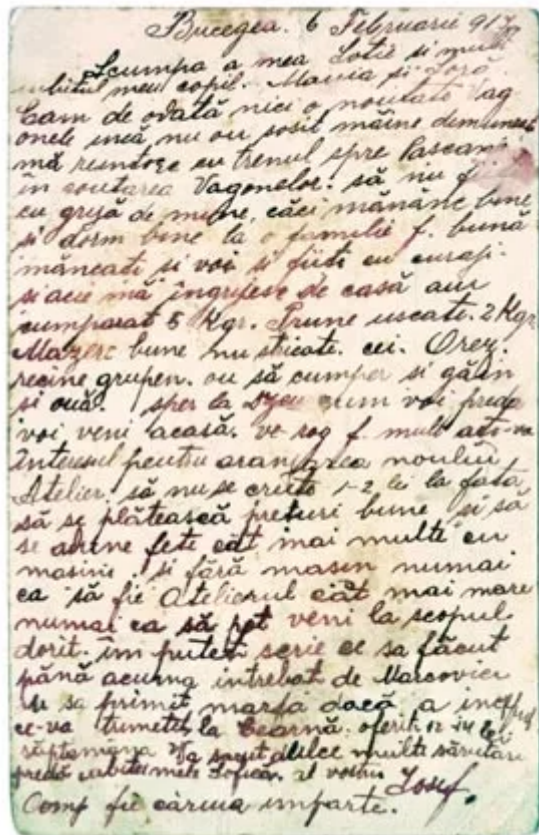 Bucegea. 6 Februarie 917
Scumpa a mea Sotie si mult
iubitul meu copil. Maria si
Cam de odată nici o noutate Vag
onele încă nu au sosit mâine dimineat
mă reîntorc cu trenul spre Pascani
în căutarea Vagonelor. să nu
cu grijă de mine, căci mănânc bine
si dorm bine la o familie f. bună
mâncati si voi si fiiti cu curaji.
si acie mă îngrijesc de casă am
cumparat 5 Kgr. Prune uscate. 2 Kgr
Mazere bune nu stricate. cei. Orez.
recine grupen. ou să cumper si găin
si ouă. sper la Dzeu cum voi preda
voi veni acasă. ve rog f. mult
Interesul pentru aranjarea noului
Atelier. să nu se crute 1-2 lei la fata
să se plătească preturi bune si să
se adune fete cât mai multe cu
masine si fără masin numai
ca să fie Atelierul cât mai mare
numai ca să pot veni la scopul
dorit. îm puteti scrie ce sa făcut
până acuma întrebat de Marcovici
sa primit marfa dacă a
ce-va trumetet la Cearnă. oferit 12-14 lei
săptamana Va sarut dulce multe sărutări
predă iubitei mele Sofica. al vostru Iosif.
Comp fie cărma imparte.